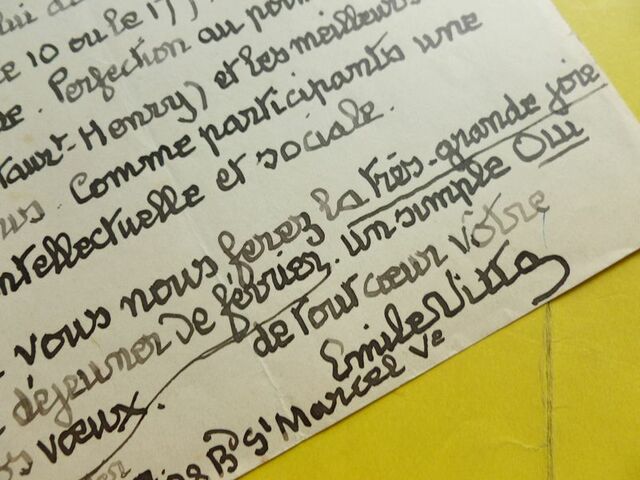 10 ou le 17
Perfection au poin
Henry) et les meilleurs
Comme participants une
ntellectuelle et sociale.
vous nous ferez la très-grande joie
déjeuner de février. un simple Oui
de tout cœur vôtre
vœux.
Emile Vitta
Bd St Marcel Ve